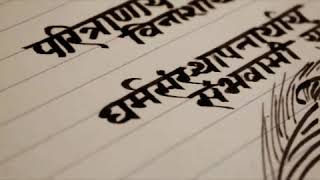 परित्राणाय
धर्मसंस्थापनार्थाय
संभवामी